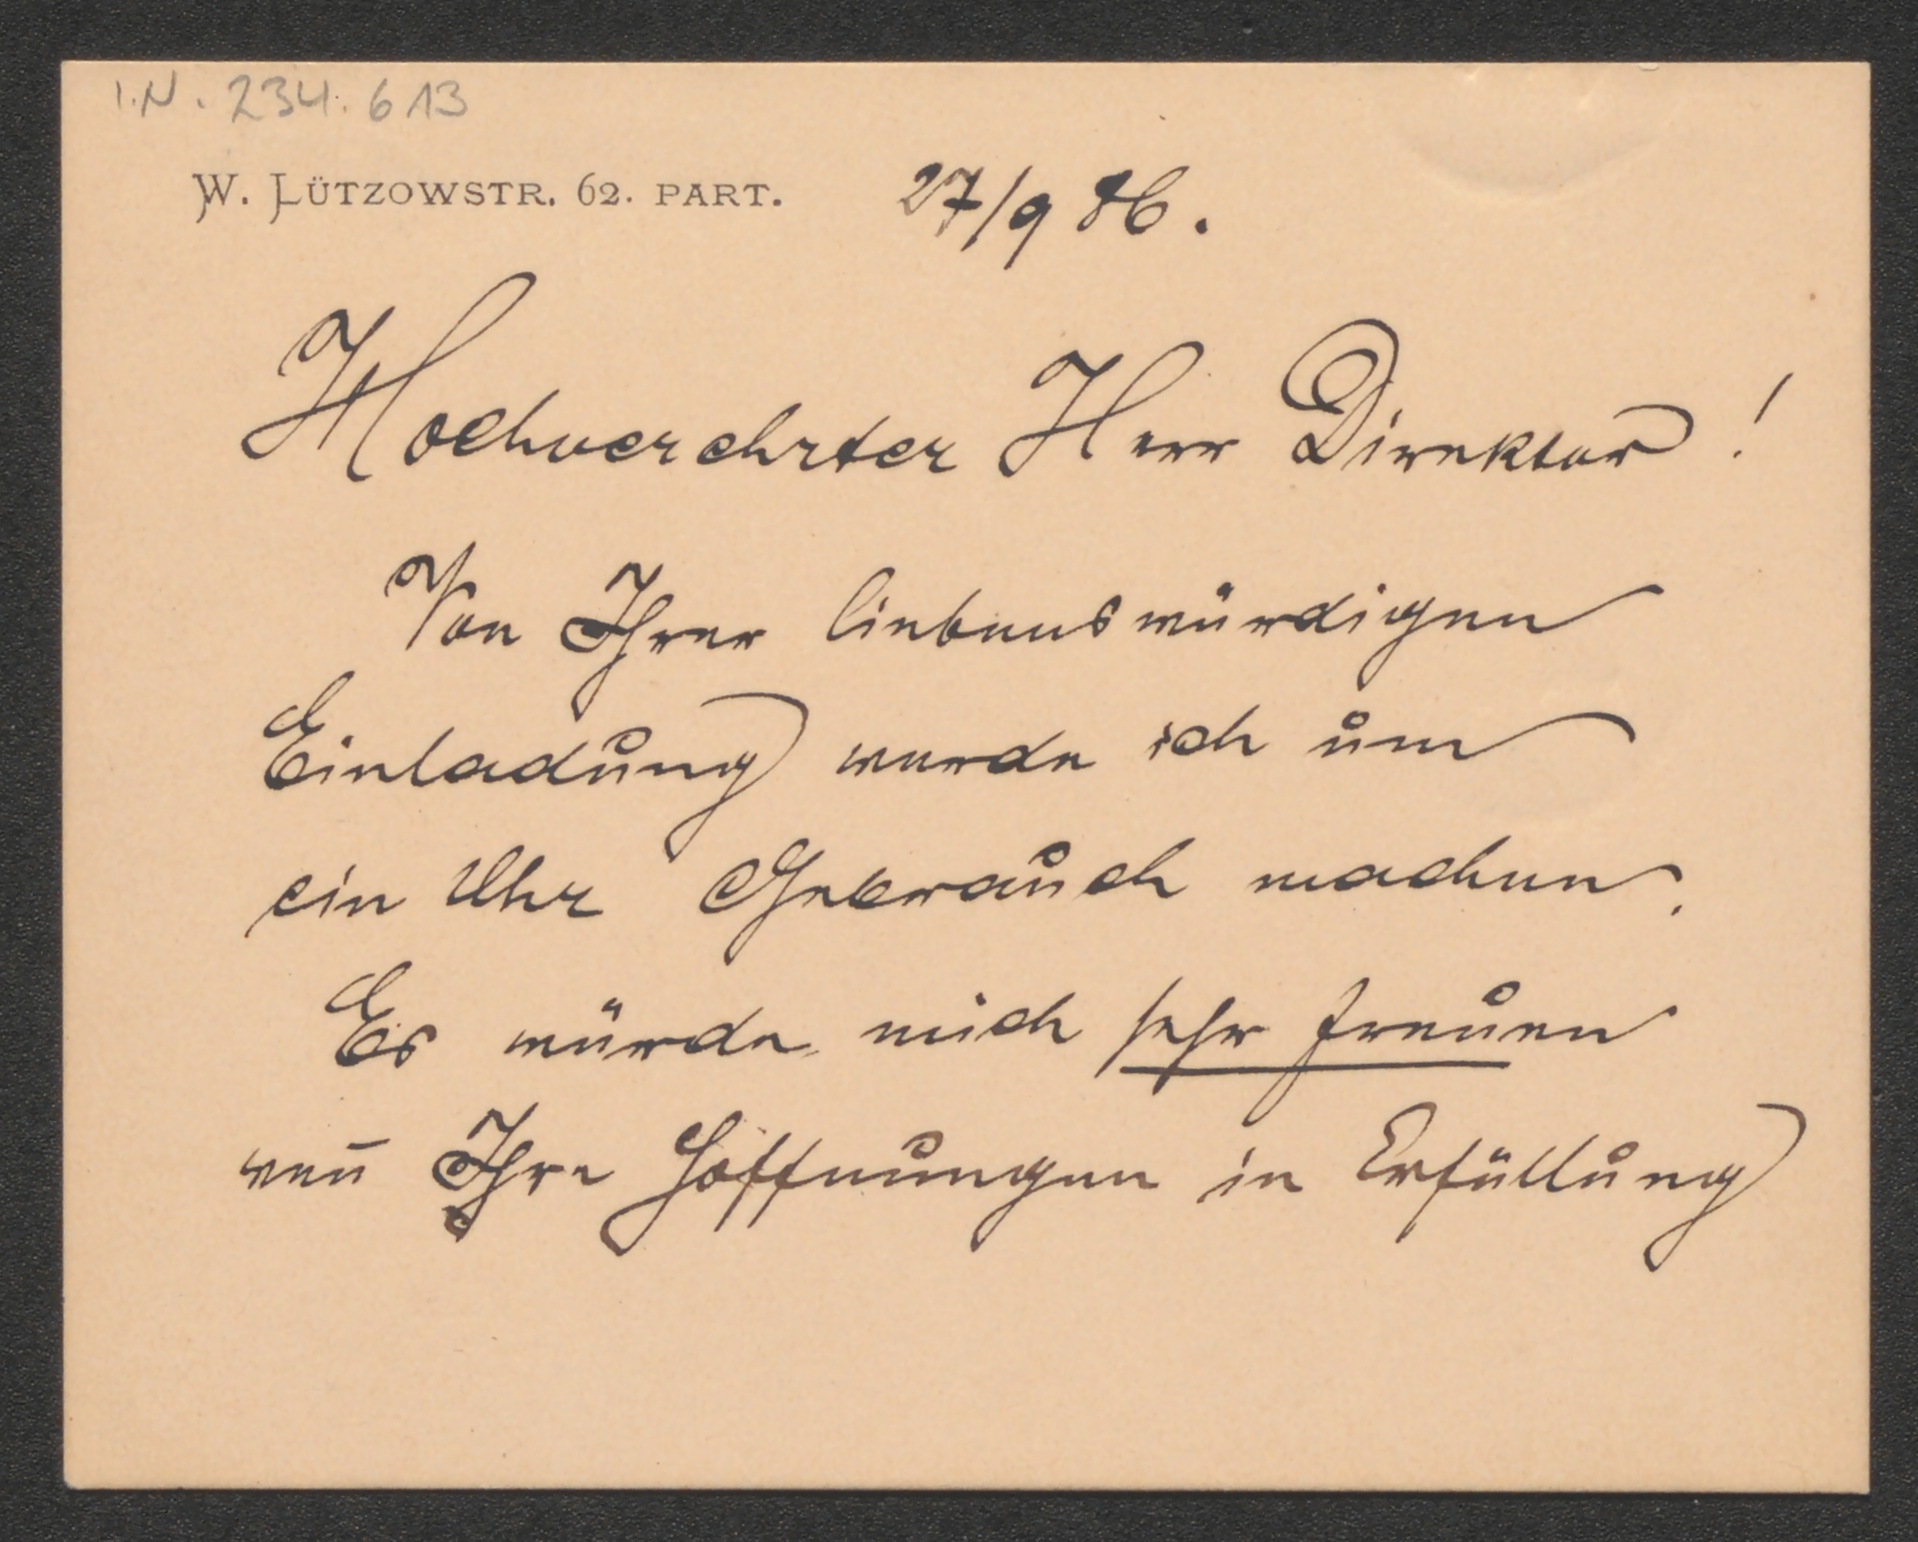 I.N. 234.613
W. LÜTZOWSTR. 62. PART. 27/9 86.
Hochverehrter Herr Direktor!
Von Ihrer liebenswürdigen
Einladung werde ich um
ein Uhr Gebrauch machen.
Es würde mich sehr freuen
wen̄ Ihre Hoffnungen in Erfüllung